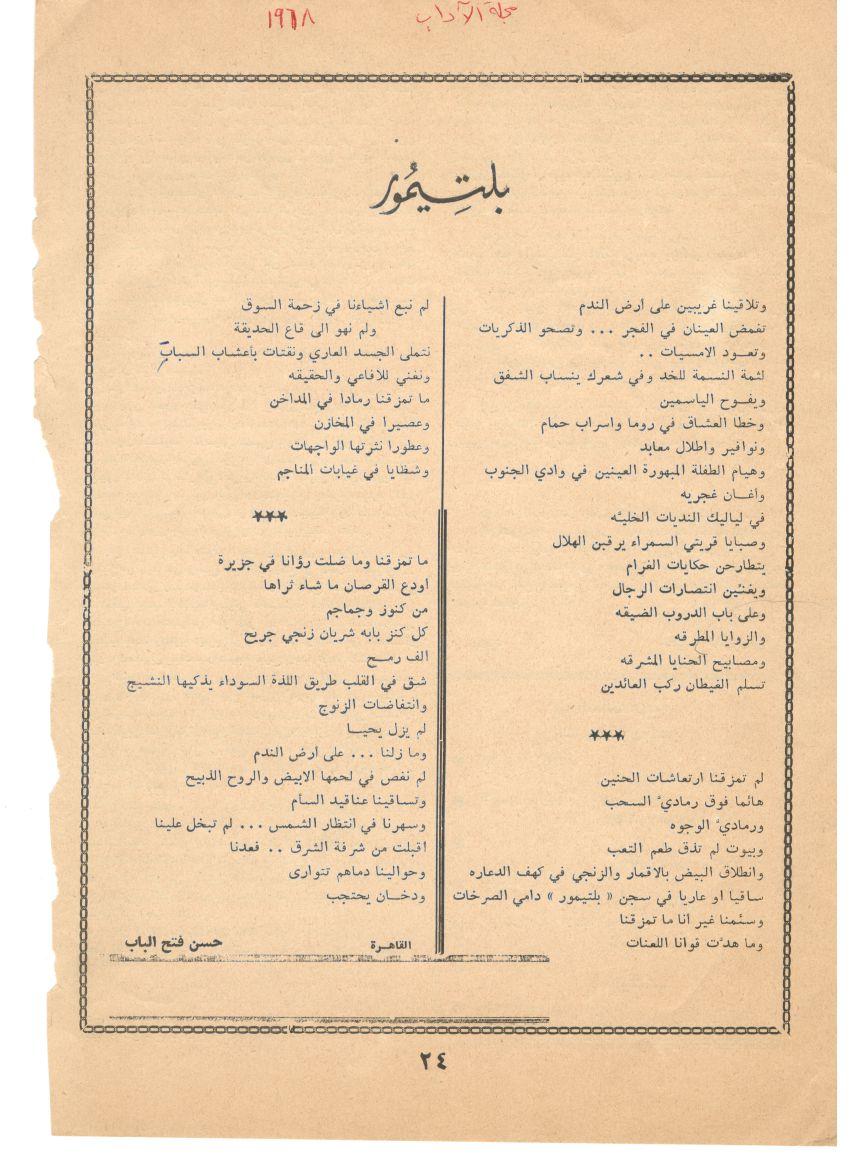 مجلة الآداب ١٩٦٨
بلتِيمُور
وتلاقينا غريبين على ارض الندم
تغمض العينان في الفجر ... وتصحو الذكريات
وتعـود الامسيات ..
لثمة النسمة للخد وفي شعرك ينساب الشفق
ويفـوح الياسمين
وخطا العشاق في روما واسراب حمام
ونوافير واطلال معابد
وهيام الطفلة المبهورة العينين في وادي الجنوب
واغـان غجريه
في لياليك النديات الخليه
وصبايا قريتي السمراء يرقبن الهلال
يتطارحن حكايات الغرام
ويغنين انتصارات الرجال
وعلى باب الدروب الضيقه
والزوايا المطرقه
ومصابيح الحنايا المشرقه
تسلم الغيطان ركب العائدين
★★★
لم تمزقنا ارتعاشات الحنين
هائما فوق رماديّ السحب
ورماديّ الوجوه
وبيوت لم تذق طعم التعب
وانطلاق البيض بالاقمار والزنجي في كهف الدعاره
ساقيا او عاريا في سجن « بلتيمور » دامي الصرخات
وسئمنا غير انا ما تمزقنا
وما هدّت قوانا اللعنات
لم نبع اشياءنا في زحمة السوق
ولم نهو الى قاع الحديقة
نتملى الجسد العاري ونقتات بأعشاب السباب
ونغني للافاعي والحقيقه
ما تمزقنا رمادا في المداخن
وعصيرا في المخازن
وعطورا نثرتها الواجهات
وشظايا في غيابات المناجم
★★★
ما تمزقنا وما ضلت رؤانا في جزيرة
اودع القرصان ما شاء ثراها
من كنوز وجماجم
كل كنز بابه شريان زنجي جريح
الف رمـح
شق في القلب طريق اللذة السوداء يذكيها النشيج
وانتفاضات الزنوج
لم يزل يحيـا
وما زلنا ... على ارض الندم
لم نغص في لحمها الابيض والروح الذبيح
وتساقينا عناقيد السأم
وسهرنا في انتظار الشمس ... لم تبخل علينا
اقبلت من شرفة الشرق .. فعدنا
وحوالينا دماهم تتوارى
ودخـان يحتجب
القاهـرة حسن فتح الباب
٢٤